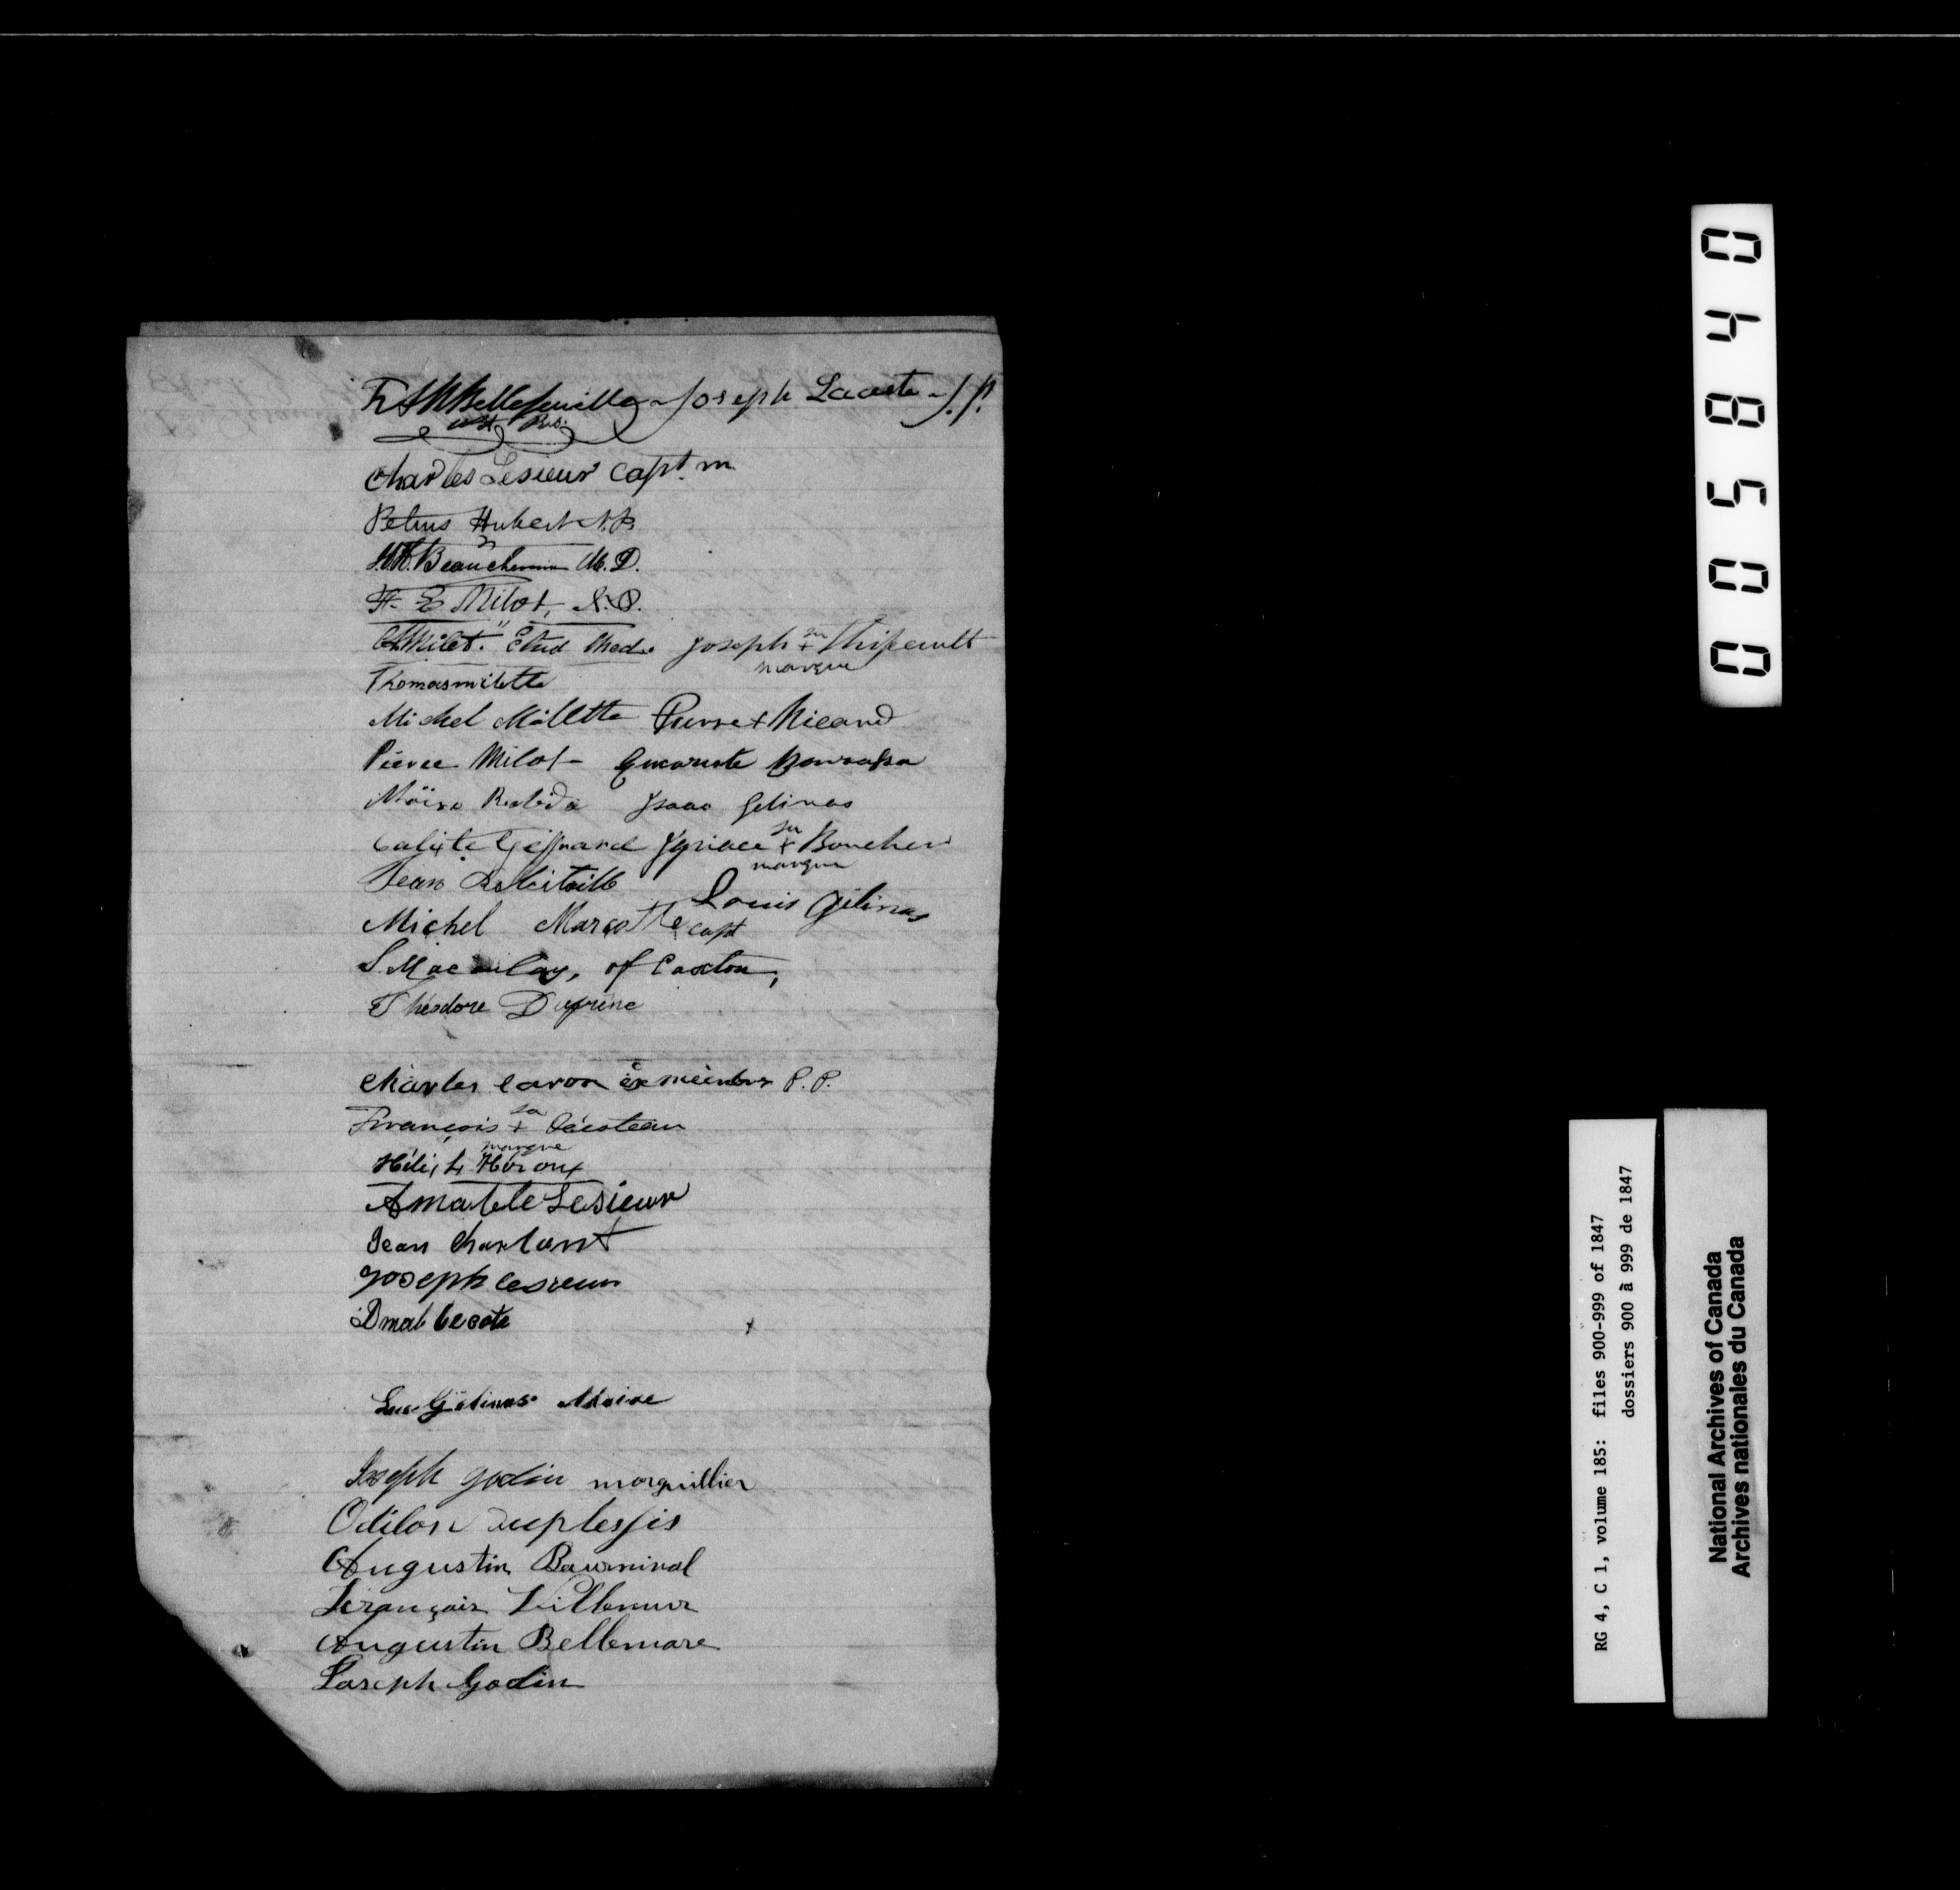 Bellefeuille Joseph Lacoste J.P.
Charles Lesieur Capt. m.
Petrus Hubert N.P.
Beauchemin M.D.
F. E. Milot, N.P.
Milot. Etud Med. Joseph sa + marque Thifeault
Thomas milette
Michel Milette Pierre + Ricard
Pierre Milot Bourassa
Möise Isaac Gelinas
Calixte Geffrard Ignace sa + marque Boucher
Jean
Louis Gélinas
Michel Marcotte capt
S. Macaulay, of Caxton,
Théodore Dufrene
Charles Caron ex membre P.P.
François sa + marque Décoteau
Héroux
Amable Lesieur
Jean Charlant
Joseph Lesieur
Luc Gélinas Maire
Joseph Godin marguillier
Odilon Duplessis
Augustin Bournival
François Villemur
Augustin Bellemare
Joseph Godin
005840
RG 4, C 1, volume 185: files 900-999 of 1847
dossiers 900 à 999 de 1847
National Archives of Canada
Archives nationales du Canada